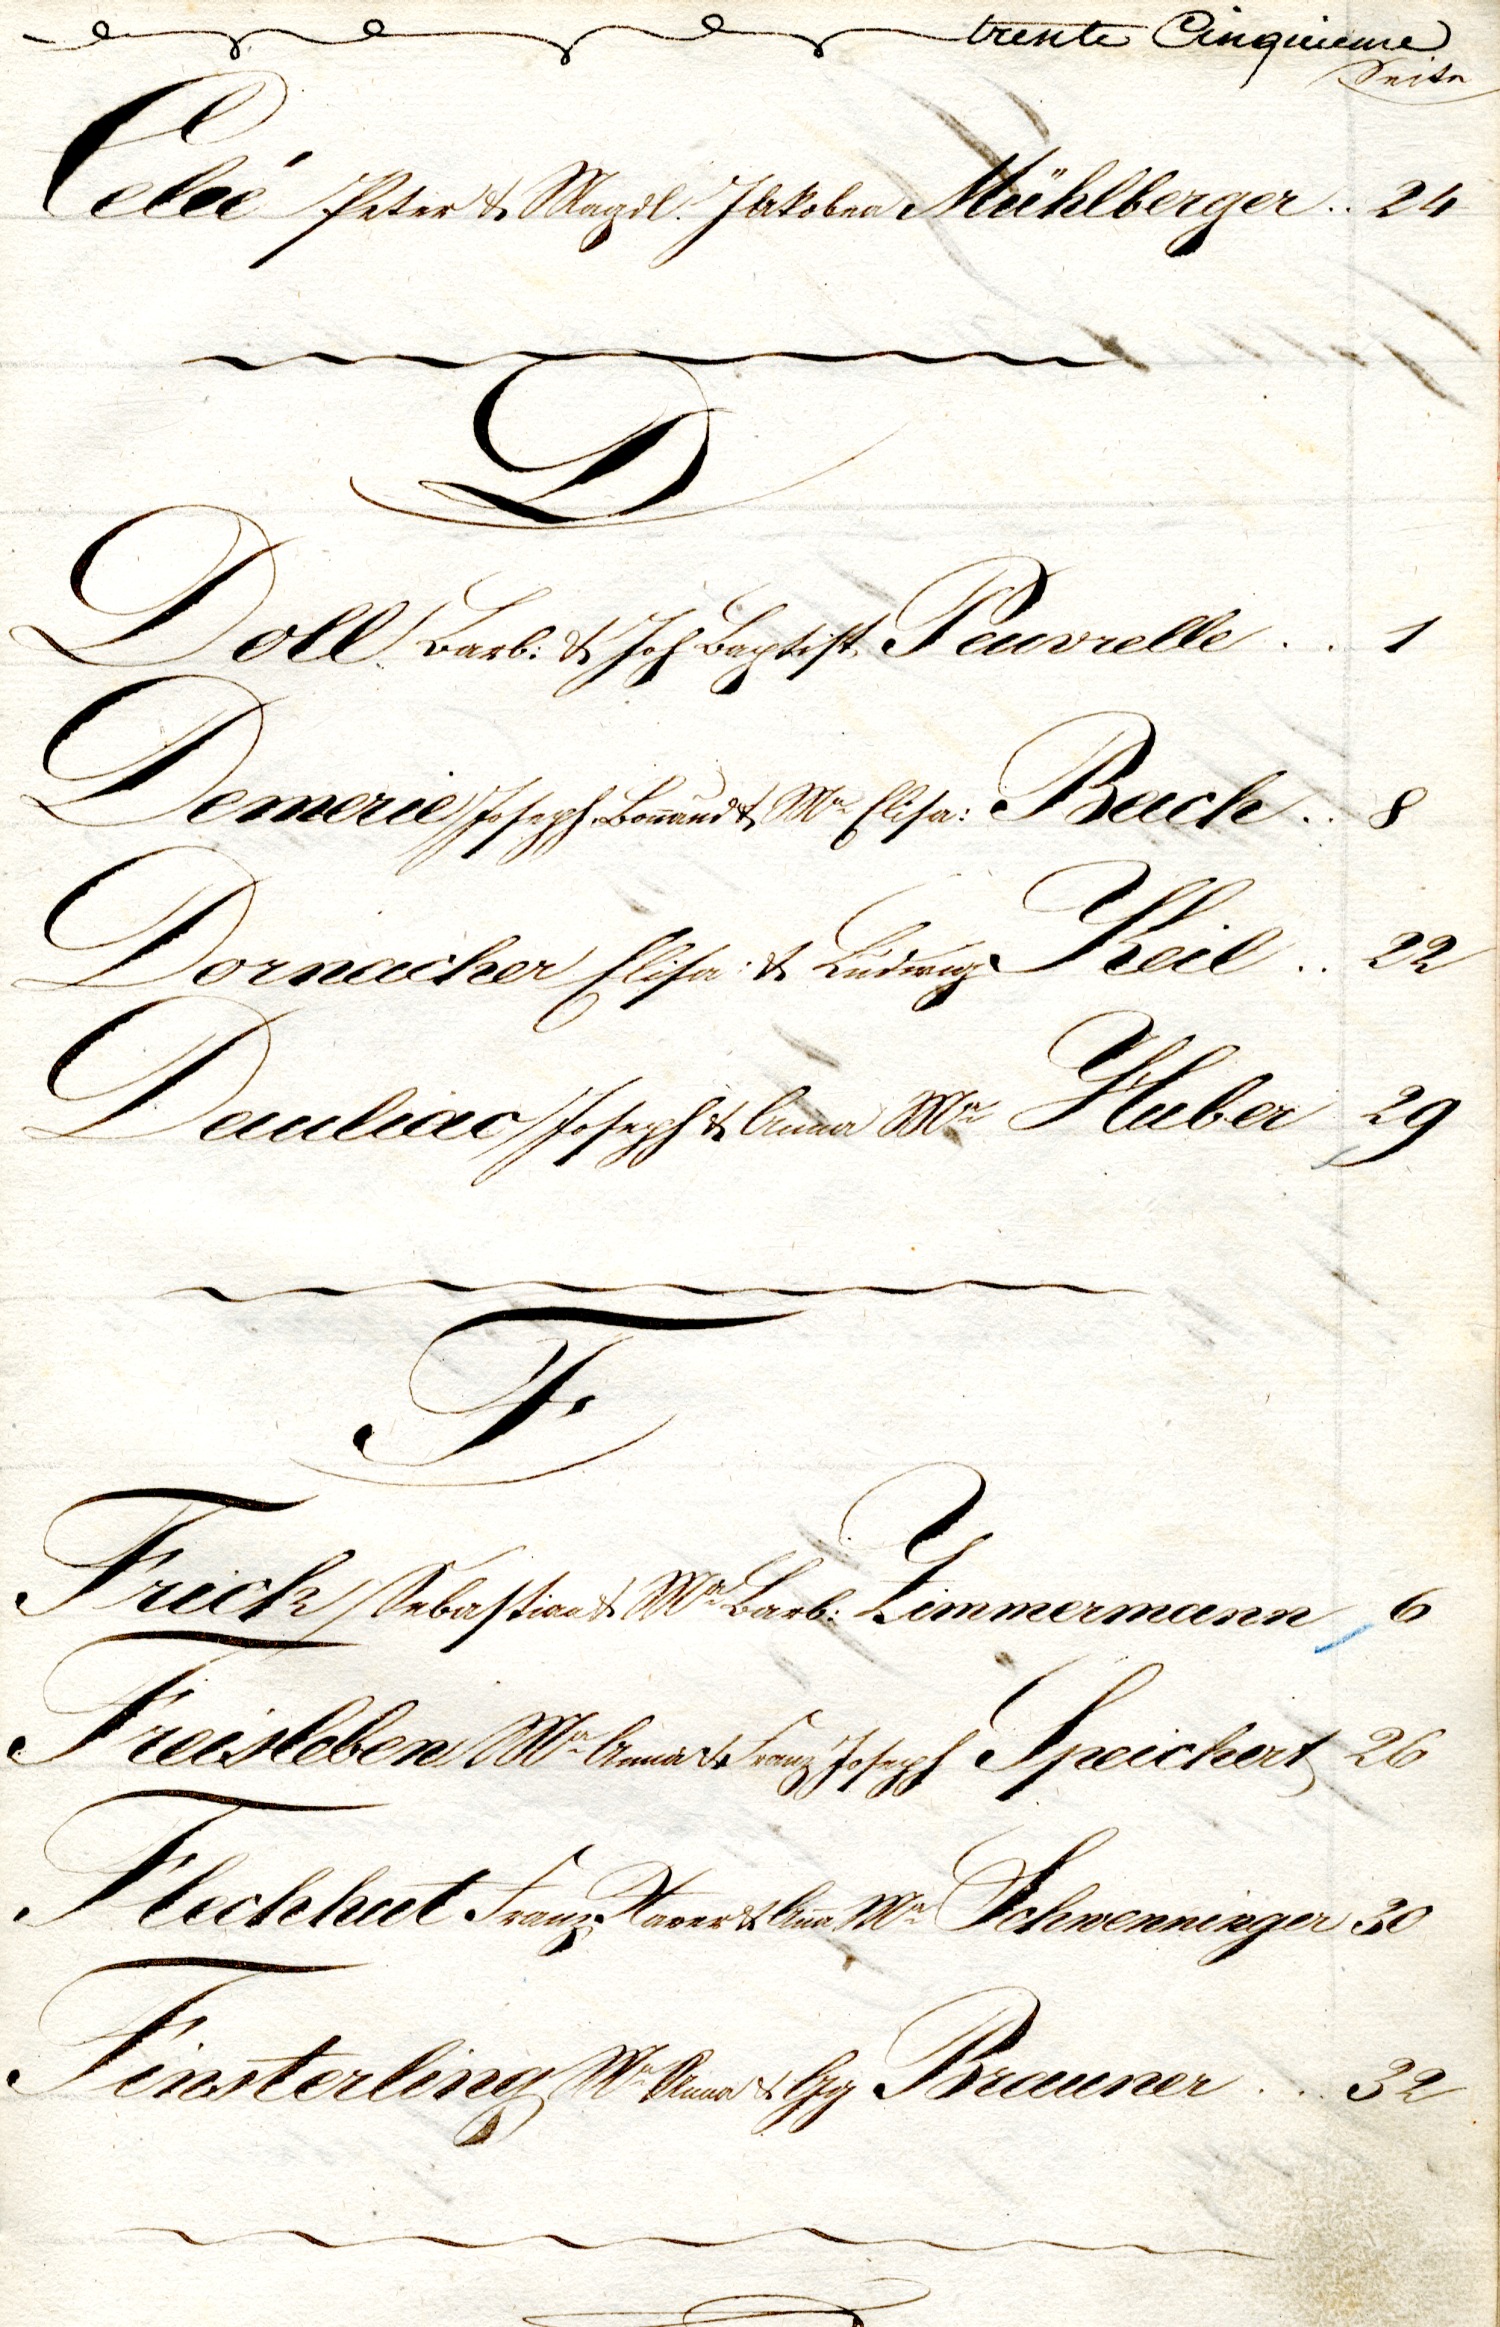 trente Cinquieme
Seite
Celeé Peter & Magdl. Jakobea Mühlberger .. 24
D
Doll Barb: & Joh Baptist Peuvrelle .. 1
Demerie Joseph Bonaud & Ma Elisa: Bach .. 8
Dornacher Elisa: & Ludwig Keil .. 22
Dauliac Joseph & Anna Ma Huber 29
F
Frick Sebastian & Ma Barb: Zimmermann 6
Freisleben Ma Anna & Franz Joseph Speichert 26
Flechhut Franz Xaver & Ana Ma Schwenninger 30
Finsterling Ma Anna & Gg Brauner .. 32